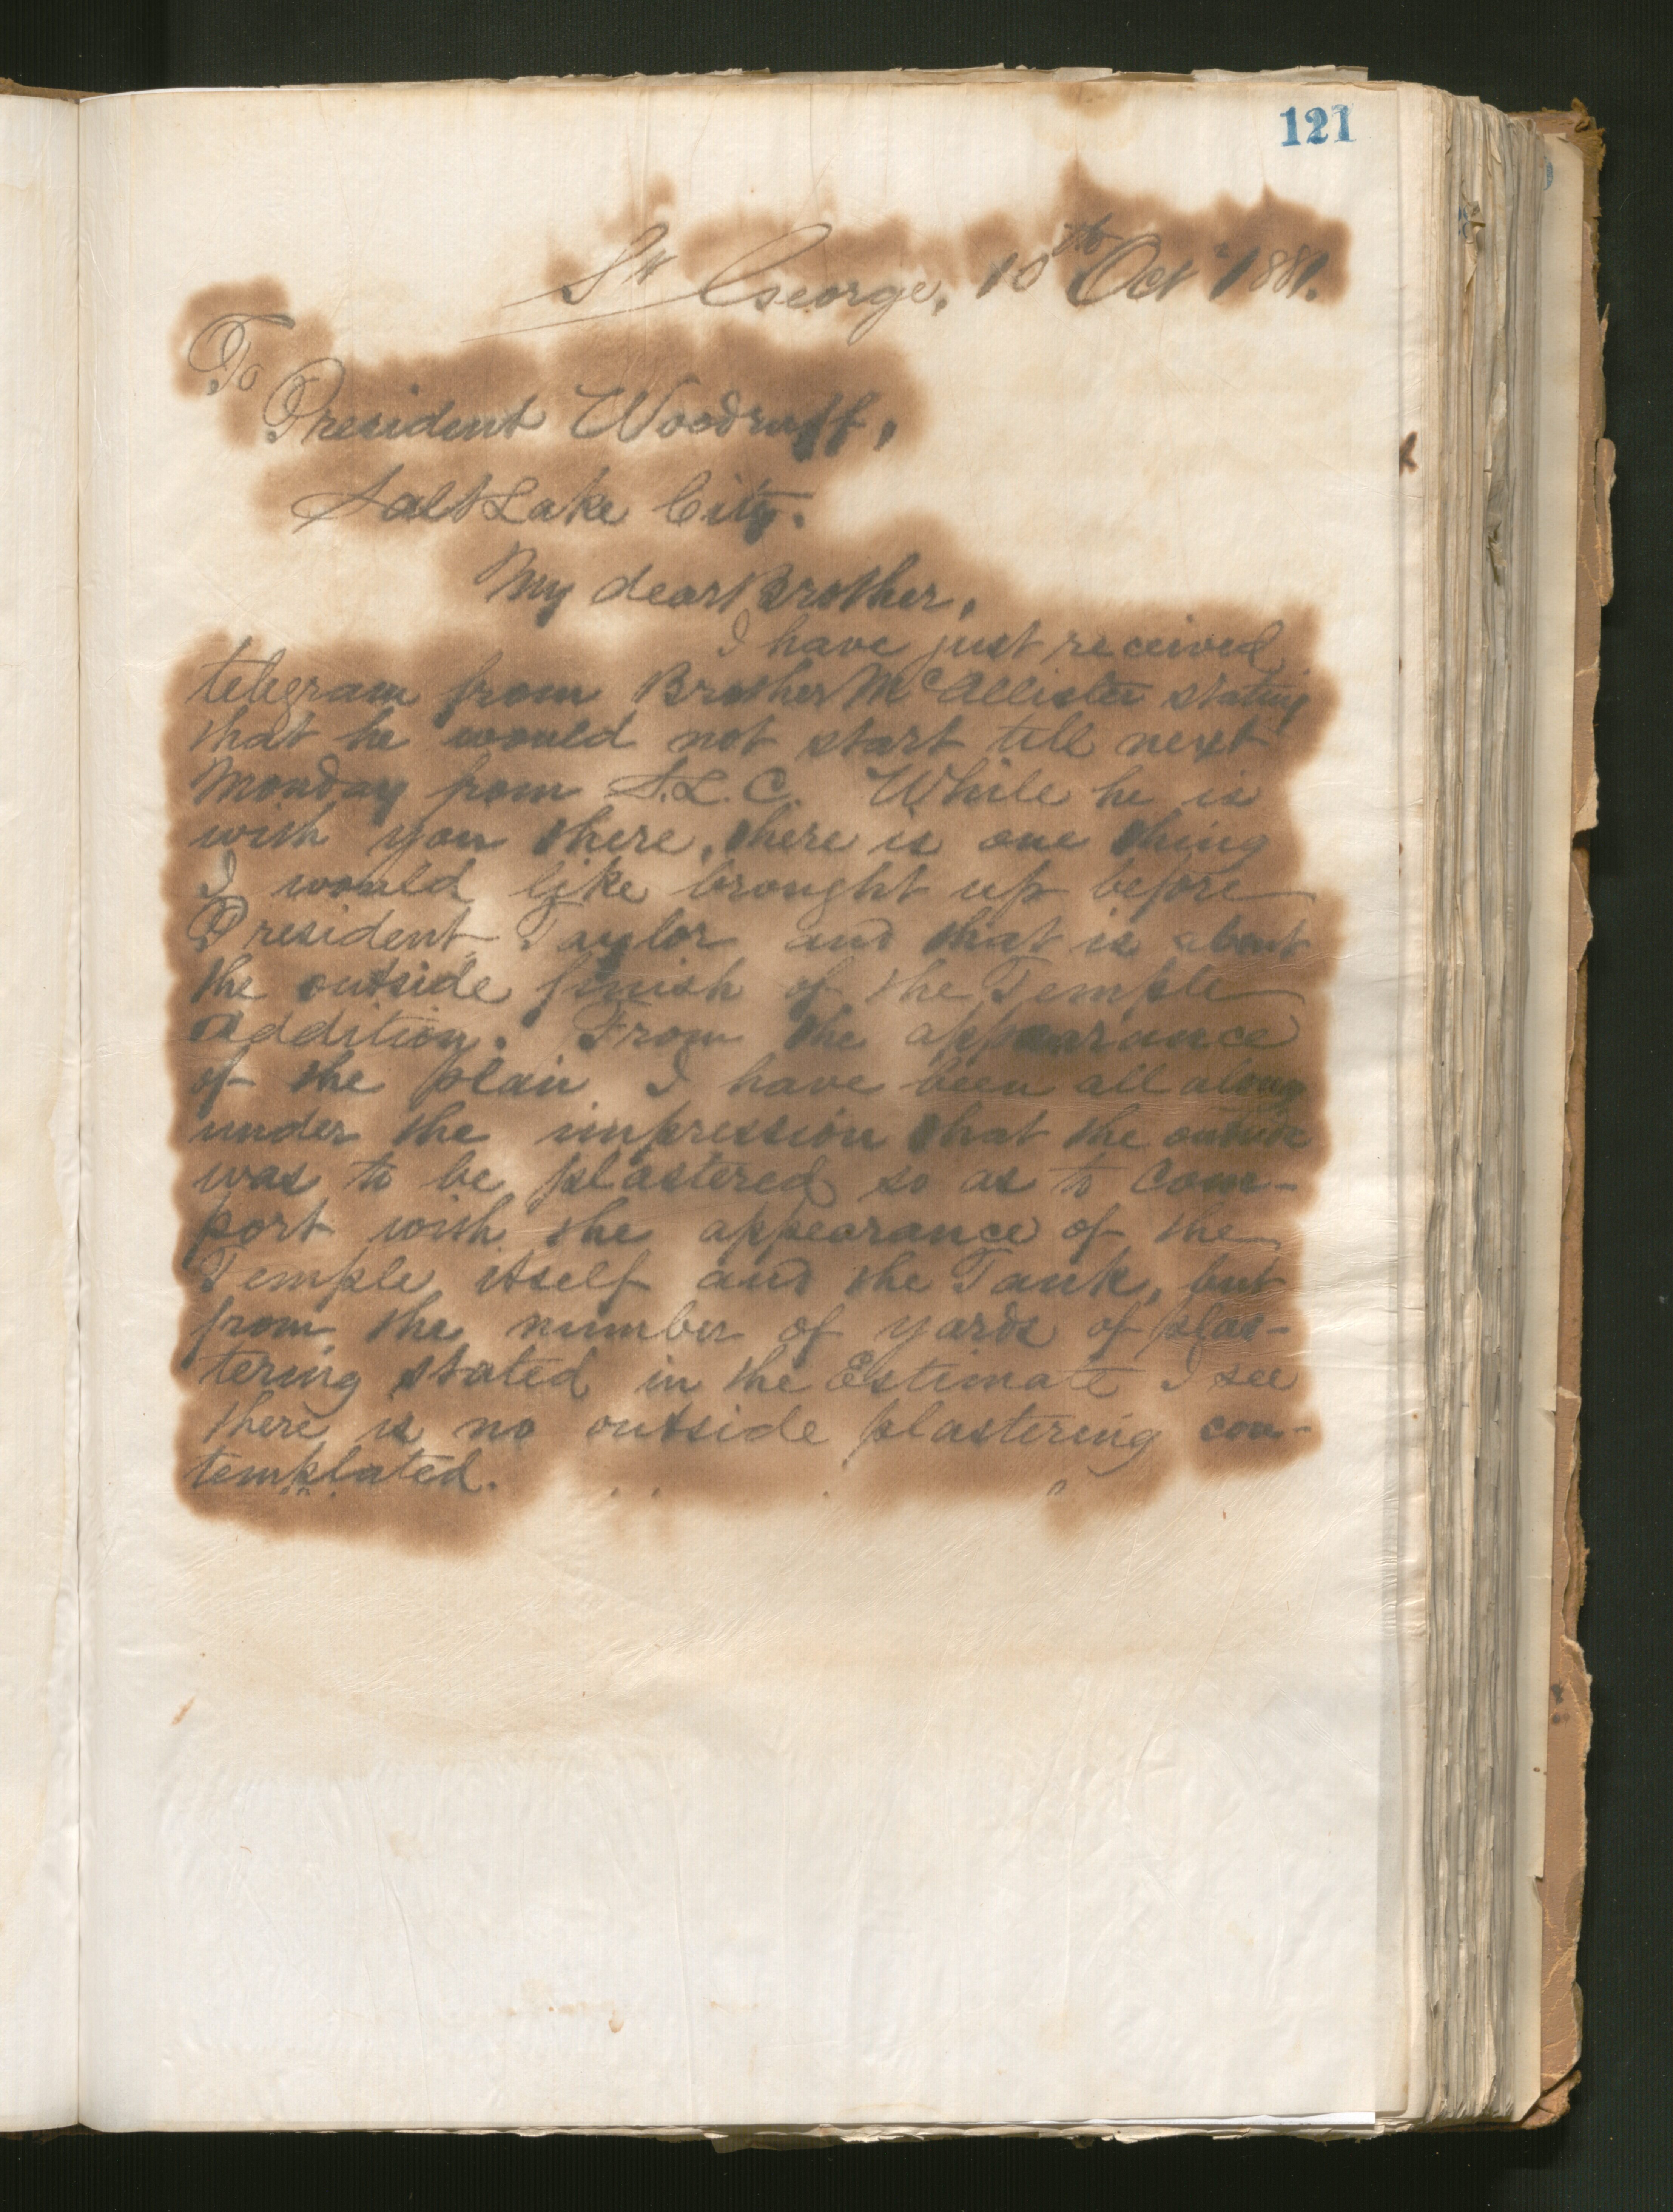 121
St George, 10th Oct 1881.
To
President Woodruff,
Salt Lake City.
My dear Brother,
I have just received
telegram from Brother McAllister stating
that he would not start till next
Monday from S.L.C. While he is
with you there, there is one thing
I would like brought up before
President Taylor and that is about
the outside finish of the Temple
addition. From the appearance
of the plan I have been all along
under the impression that the outside
was to be plastered so as to com-
port with the appearance of the
Temple itself and the Tank, but
from the number of yards of plas-
tering stated in the Estimate I see
there is no outside plastering con-
templated.